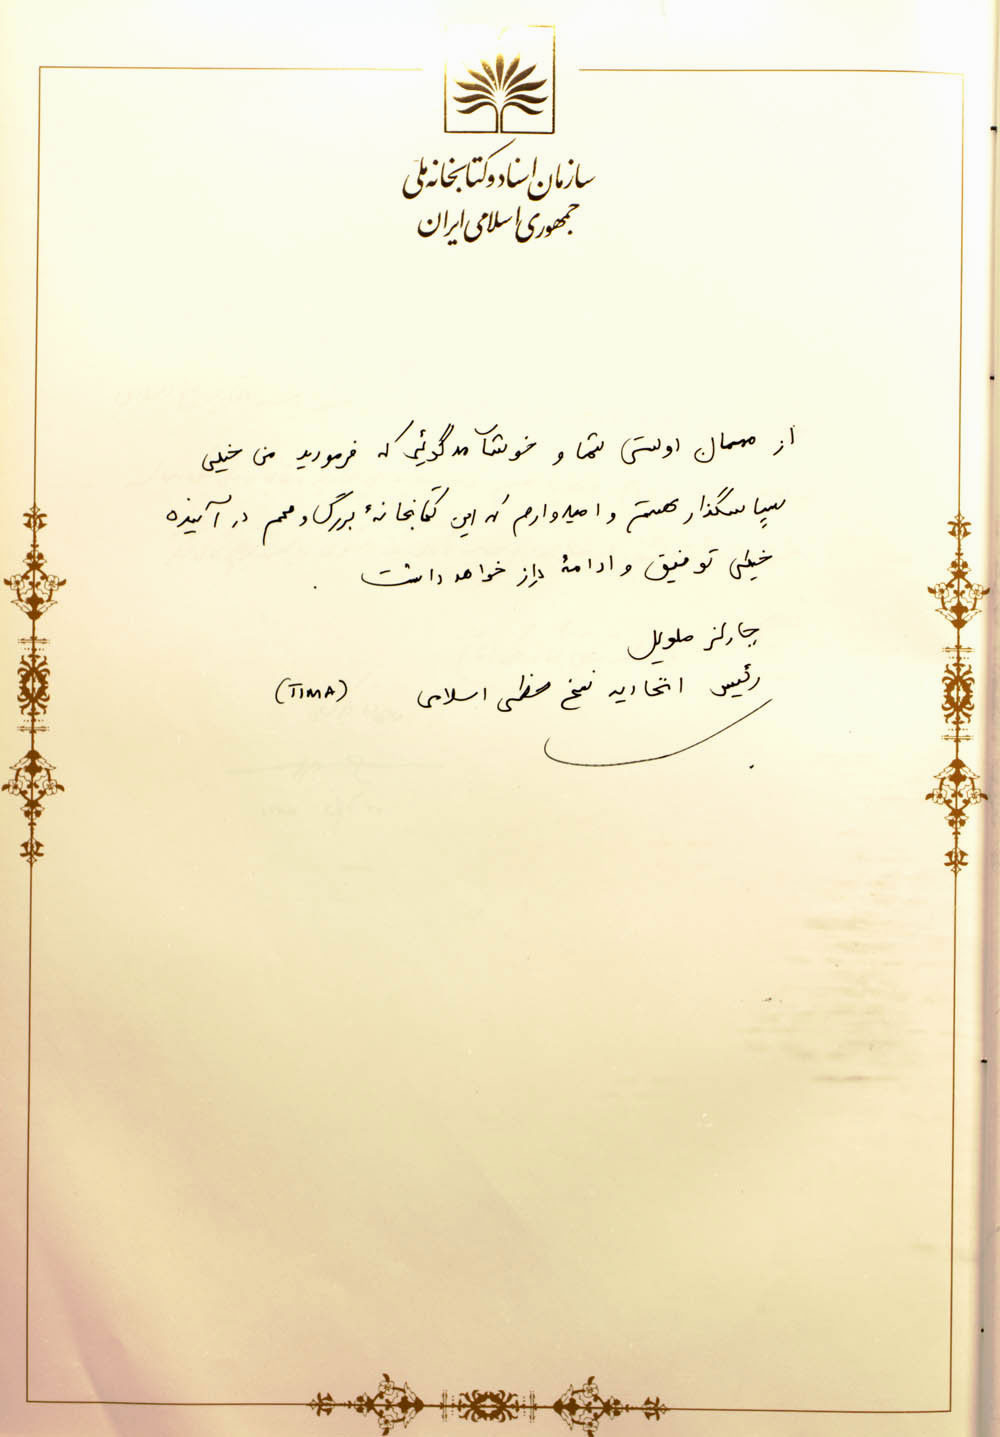 سازمان اسناد و کتابخانه ملی
جمهوری اسلامی ایران
از مهمان اوستی شما و خوشآمدگوئی که فرمودید من خیلی
سپاسگذار هستم و امیدوارم که این کتابخانهٔ بزرگ و مهم در آینده
خیلی توفیق و ادامهٔ دراز خواهد داشت .
چارلز ملویل
رئیس اتحادیه نسخ خطی اسلامی (TIMA)